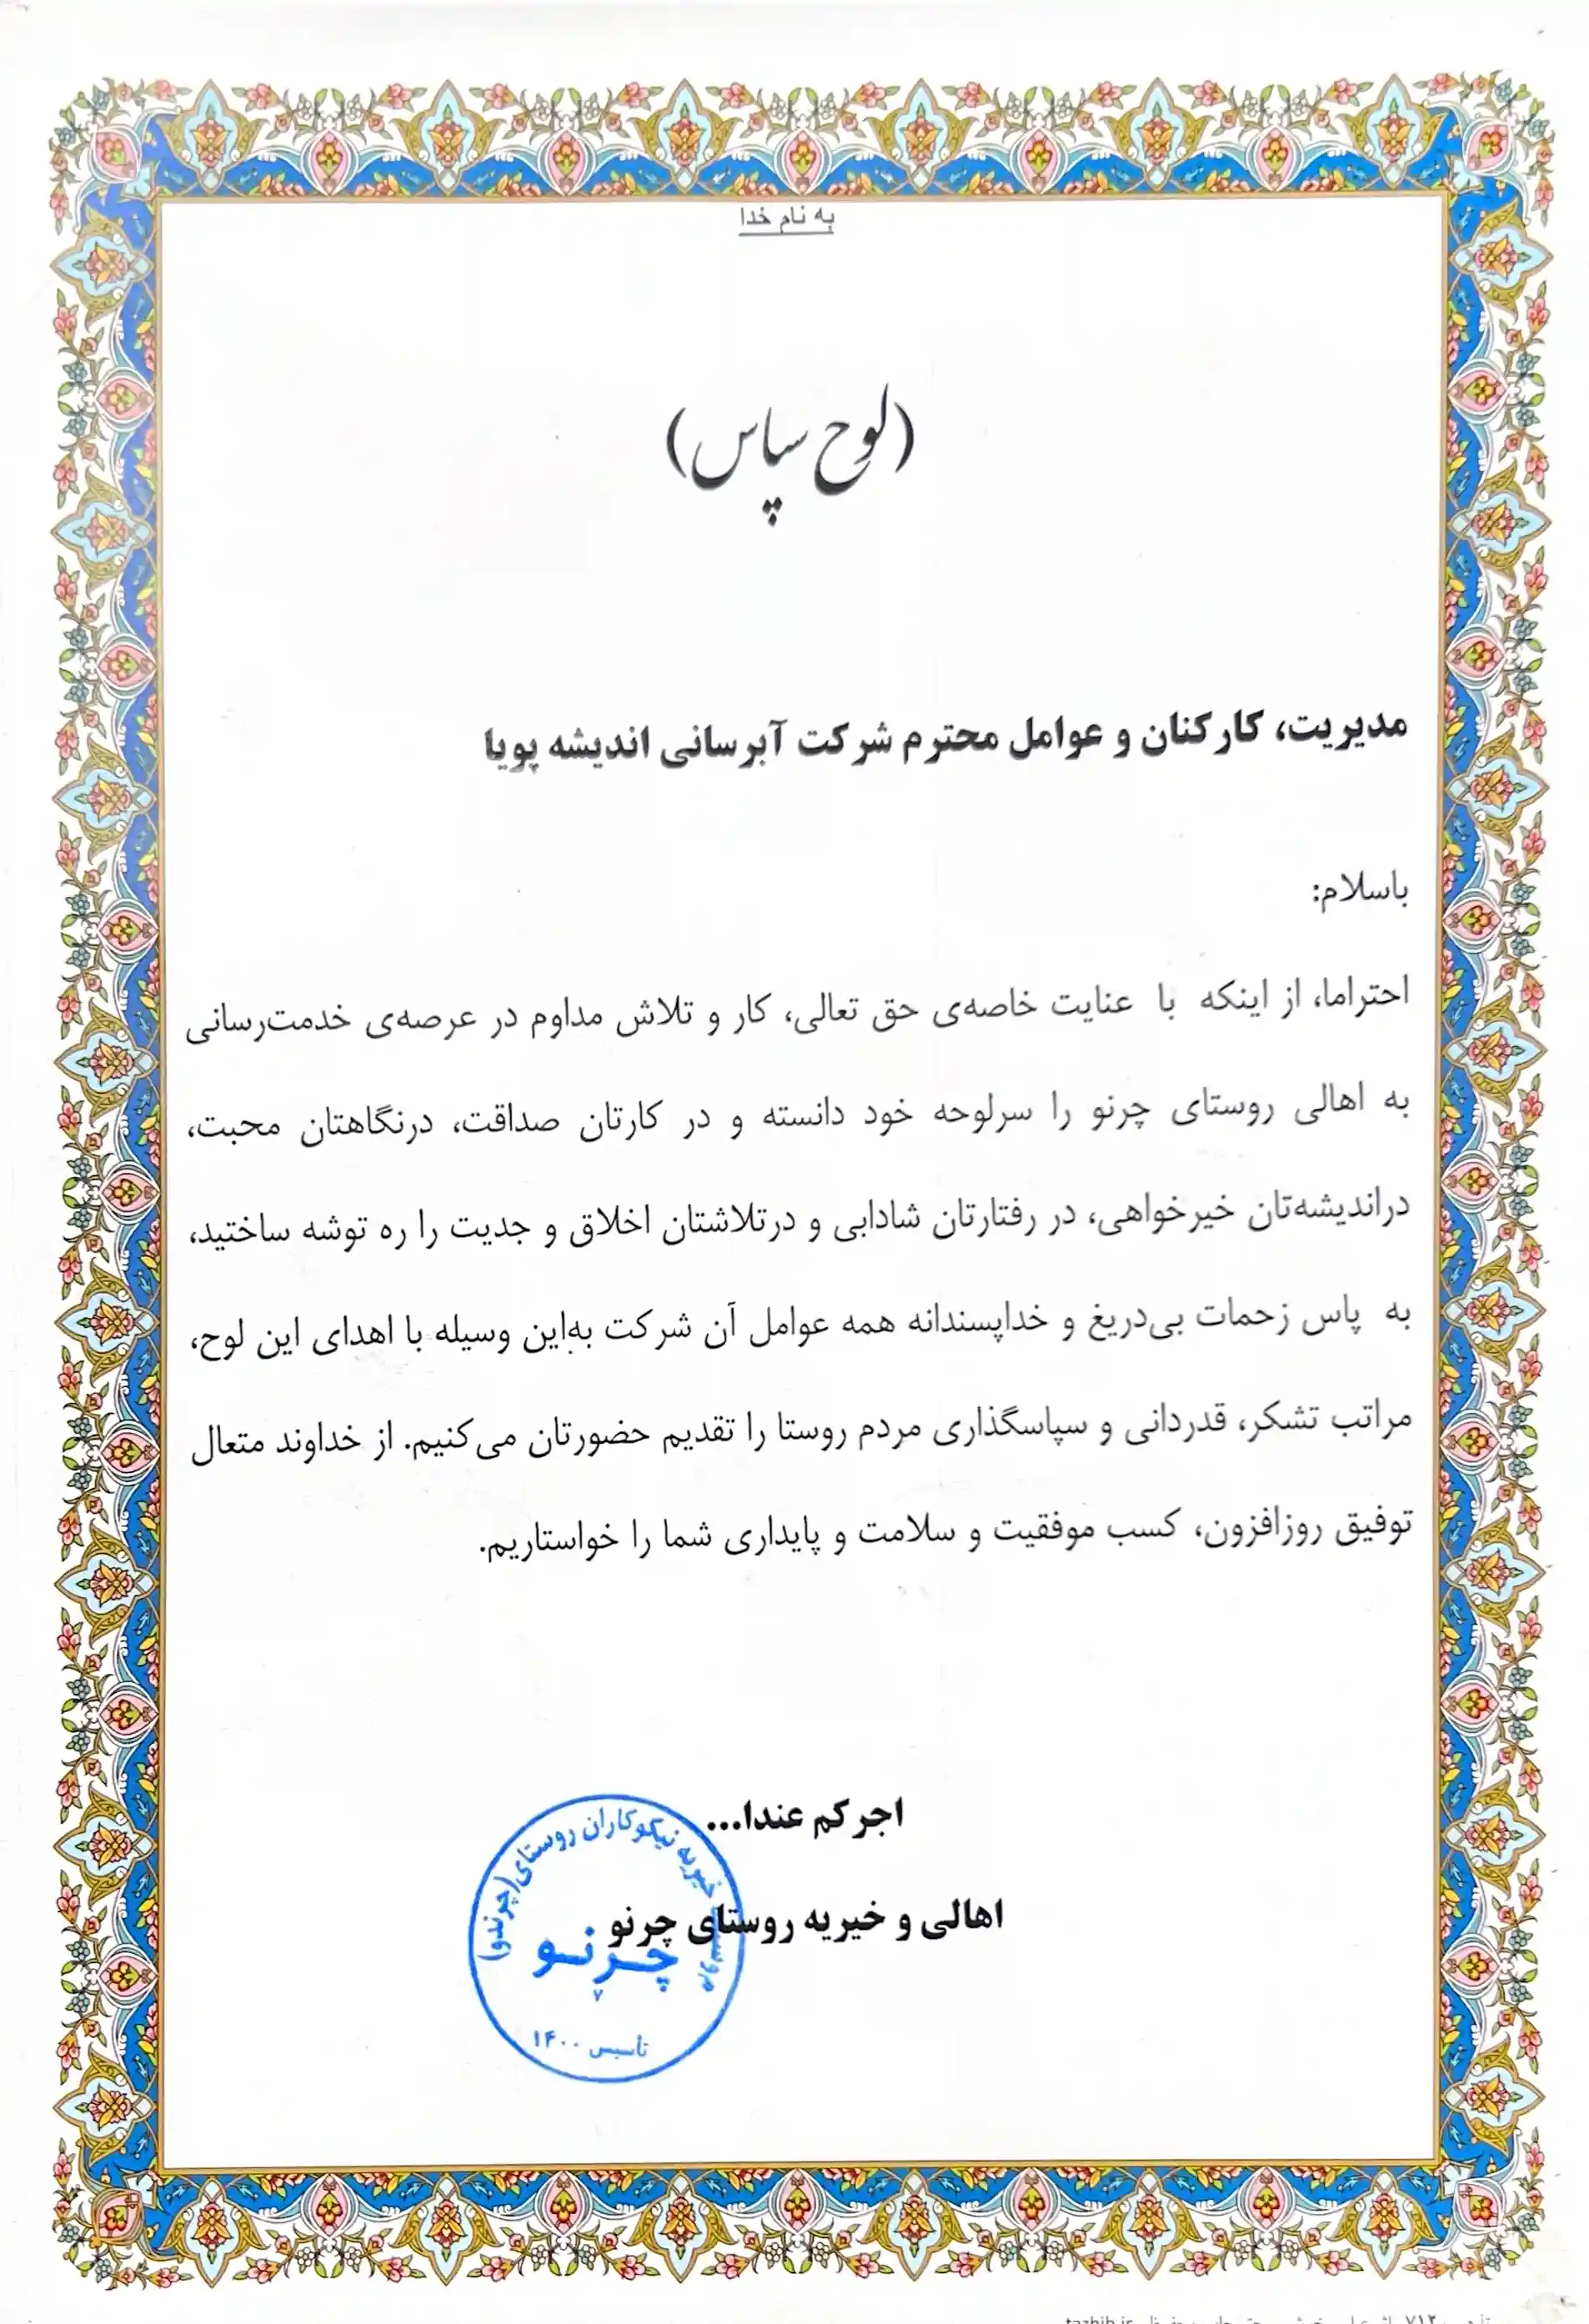 به نام خدا
(لوح سپاس)
مدیریت، کارکنان و عوامل محترم شرکت آبرسانی اندیشه پویا
باسلام:
احتراما، از اینکه با عنایت خاصه‌ی حق تعالی، کار و تلاش مداوم در عرصه‌ی خدمت‌رسانی
به اهالی روستای چرنو را سرلوحه خود دانسته و در کارتان صداقت، درنگاهتان محبت،
دراندیشه‌تان خیرخواهی، در رفتارتان شادابی و درتلاشتان اخلاق و جدیت را ره توشه ساختید،
به پاس زحمات بی‌دریغ و خداپسندانه همه عوامل آن شرکت به‌این وسیله با اهدای این لوح،
مراتب تشکر، قدردانی و سپاسگذاری مردم روستا را تقدیم حضورتان می‌کنیم. از خداوند متعال
توفیق روزافزون، کسب موفقیت و سلامت و پایداری شما را خواستاریم.
اجرکم عندا...
اهالی و خیریه روستای چرنو
خیریه نیکوکاران روستای (چرندو)
چرنو
تاسیس ۱۴۰۰
tazhib.ir